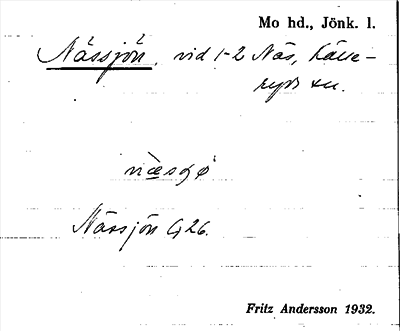 Mo hd., Jönk. l.
Nässjön, vid 1-2 Näs, Källe-
ryds sn.
næsɔ̨ø
Nässjön G 26.
Fritz Andersson 1932.